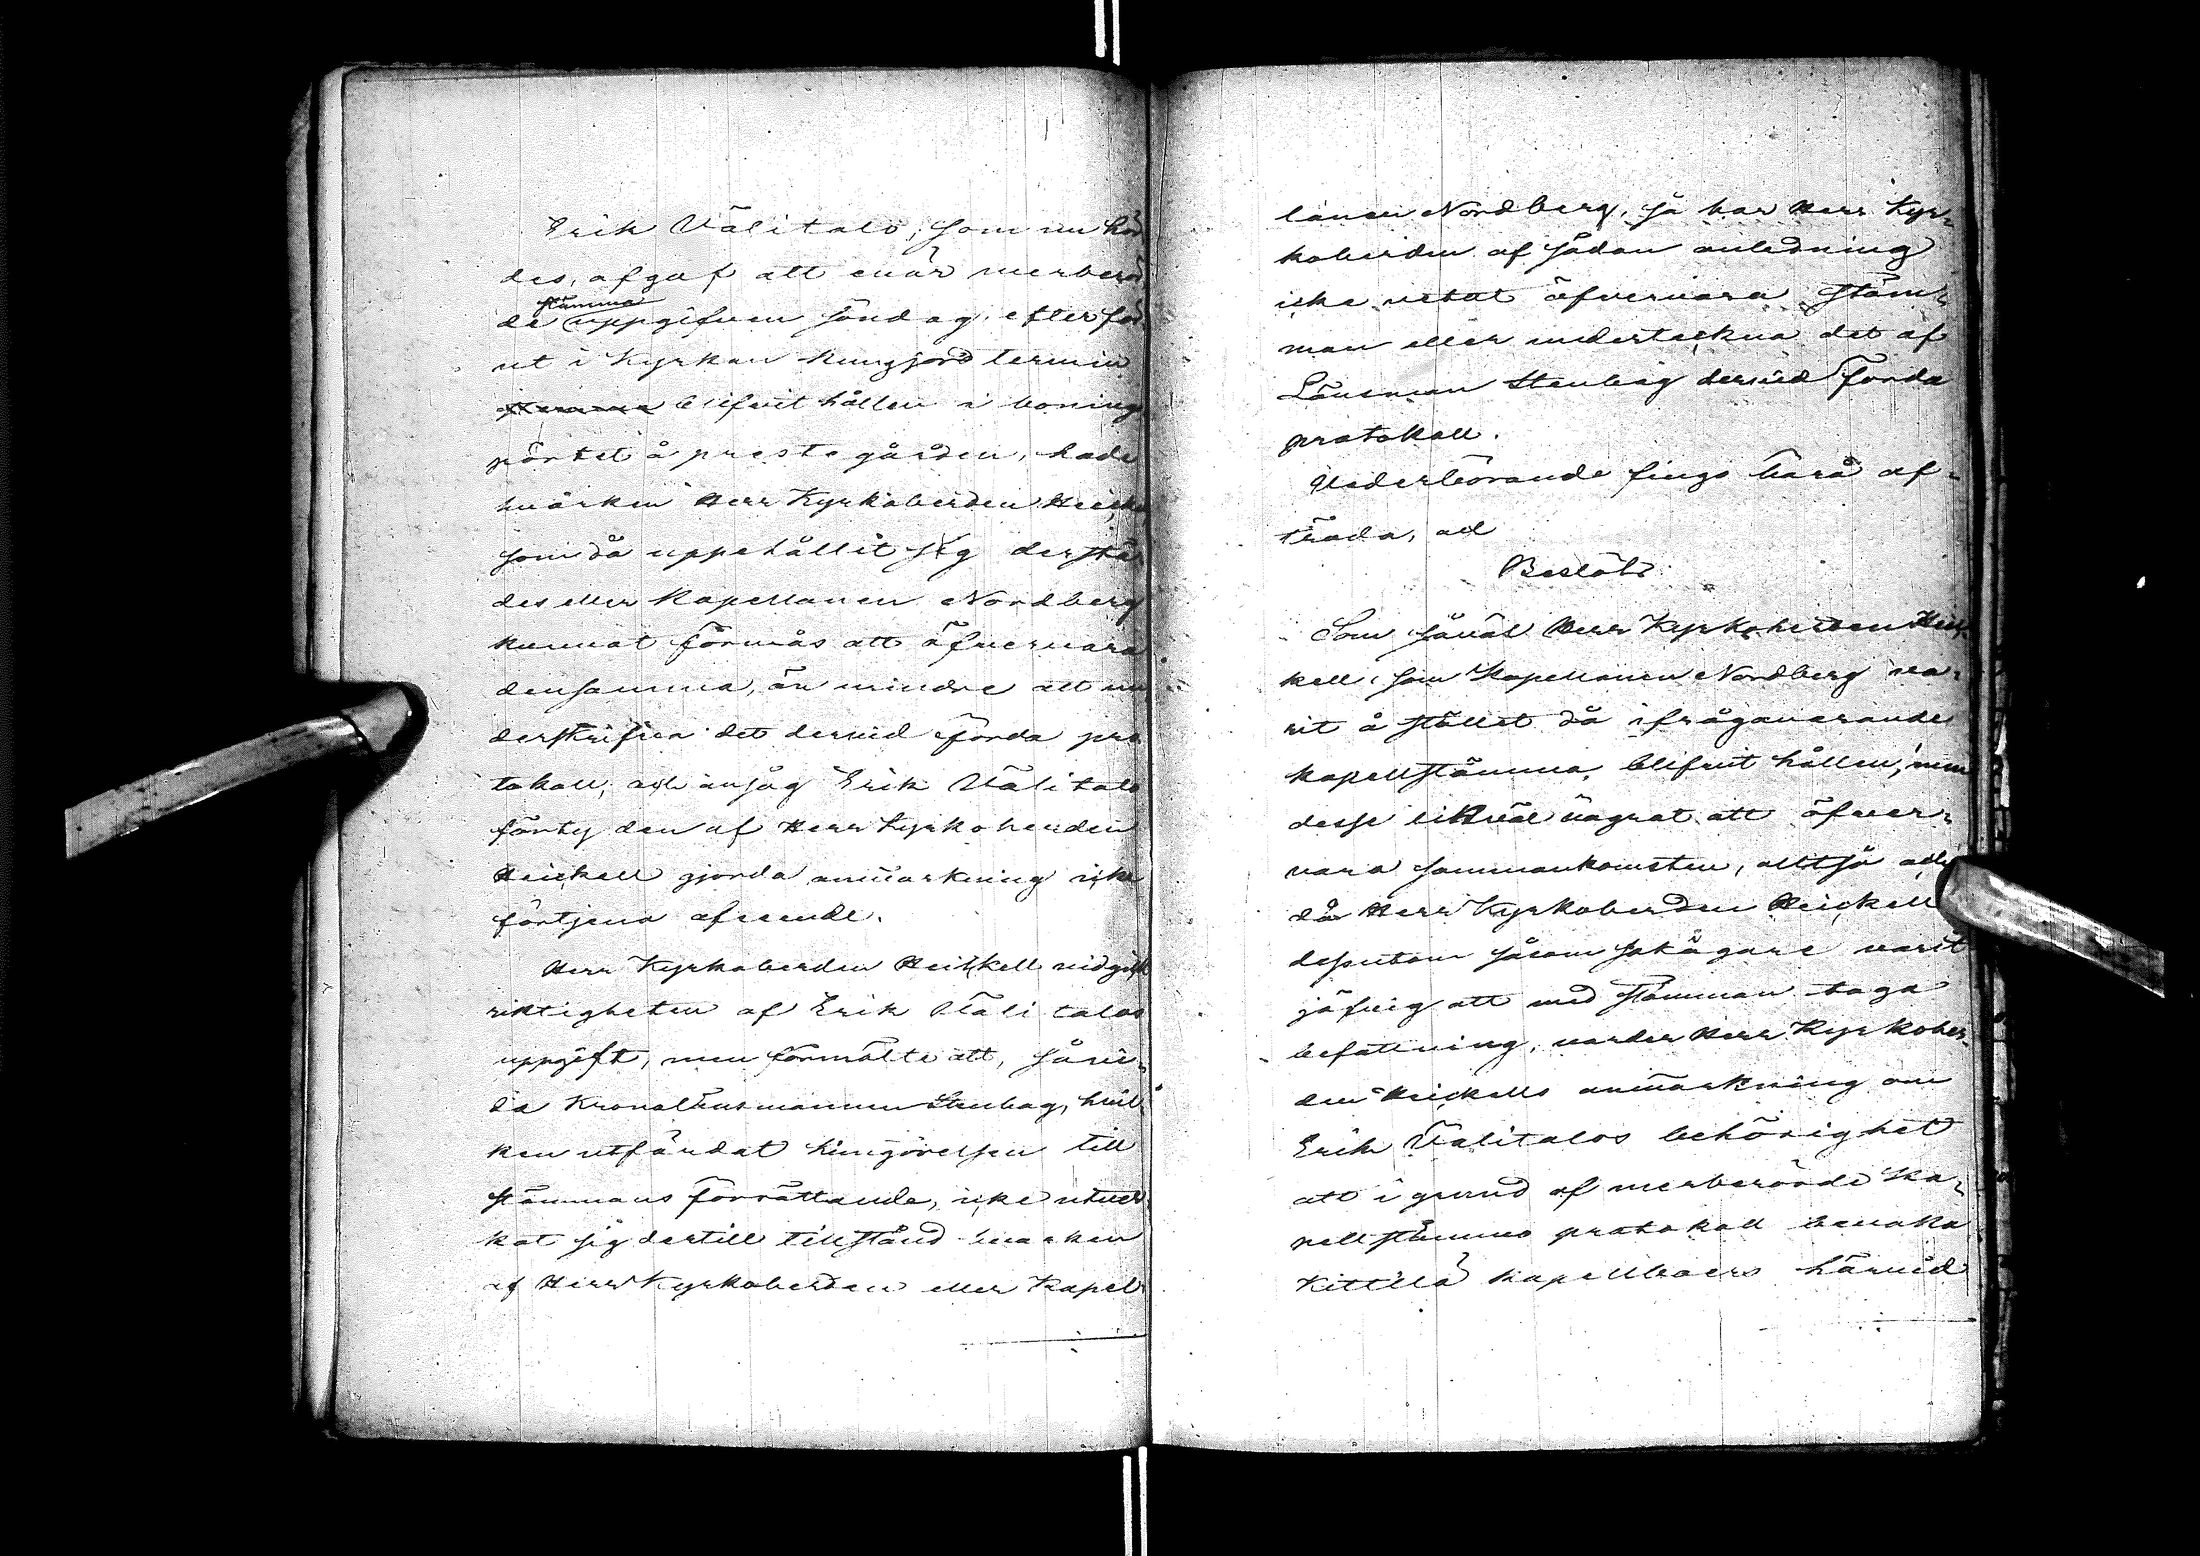 Erik Välitalo, som nu hör
des, afgaf att enär merberör
stämma
de uppgifven söndag, efter för
ut i Kyrkan kungjord termin
blifvit hållen i bonings
pörtet å prestegården, hade
hvarken Herr Kyrkoherden Heicke
som då uppehållit sig derstä
des eller Kapellanen Nordberg
kunnat förmås att öfvervara
densamma, än mindre att un
derskrifva det dervid förda pro
tokoll, och ansåg Erik Välitalo
förty den af Herr Kyrkoherden
Heickell gjorda anmärkning icke
förtjena afseende.
Herr Kyrkoherden Heickell vidgick
riktigheten af Erik Välitalos
uppgift, men förmälte att, såvi-
da Kronolänsmannen Stenbag, hvil
ken utfärdat kungörelsen till
stämmans förrättande, icke utver
kat sig dertill tillstånd hvarken
af Herr Kyrkoherden eller Kapel
lanen Nordberg, så har Herr Kyr-
koherden af sådan anledning
icke velat öfvervara stäm-
man eller underteckna det af
Länsman Stenbäg dervid förda
protokoll.
Vederbörande fingo härå af-
träda, och
Beslöts:
Som såväl Herr Kyrkoherden Heic-
kell, som Kapellanen Nordberg va-
rit å stället då ifrågavarande
kapellstämma, blifvit hållen, men
desse likväl vägrat att öfver-
vara sammankomsten, alltså och
då Herr Kyrkoherden Heickell
dessutom såsom sakägare varit
jäfvig att med stämman taga
befattning, varder Herr Kyrkoher-
den Heickells anmärkning om
Erik Välitalos behörighet
att i grund af merberörde Ka-
pellstämmo protokoll bevaka
Kittilä kapellboers härvid